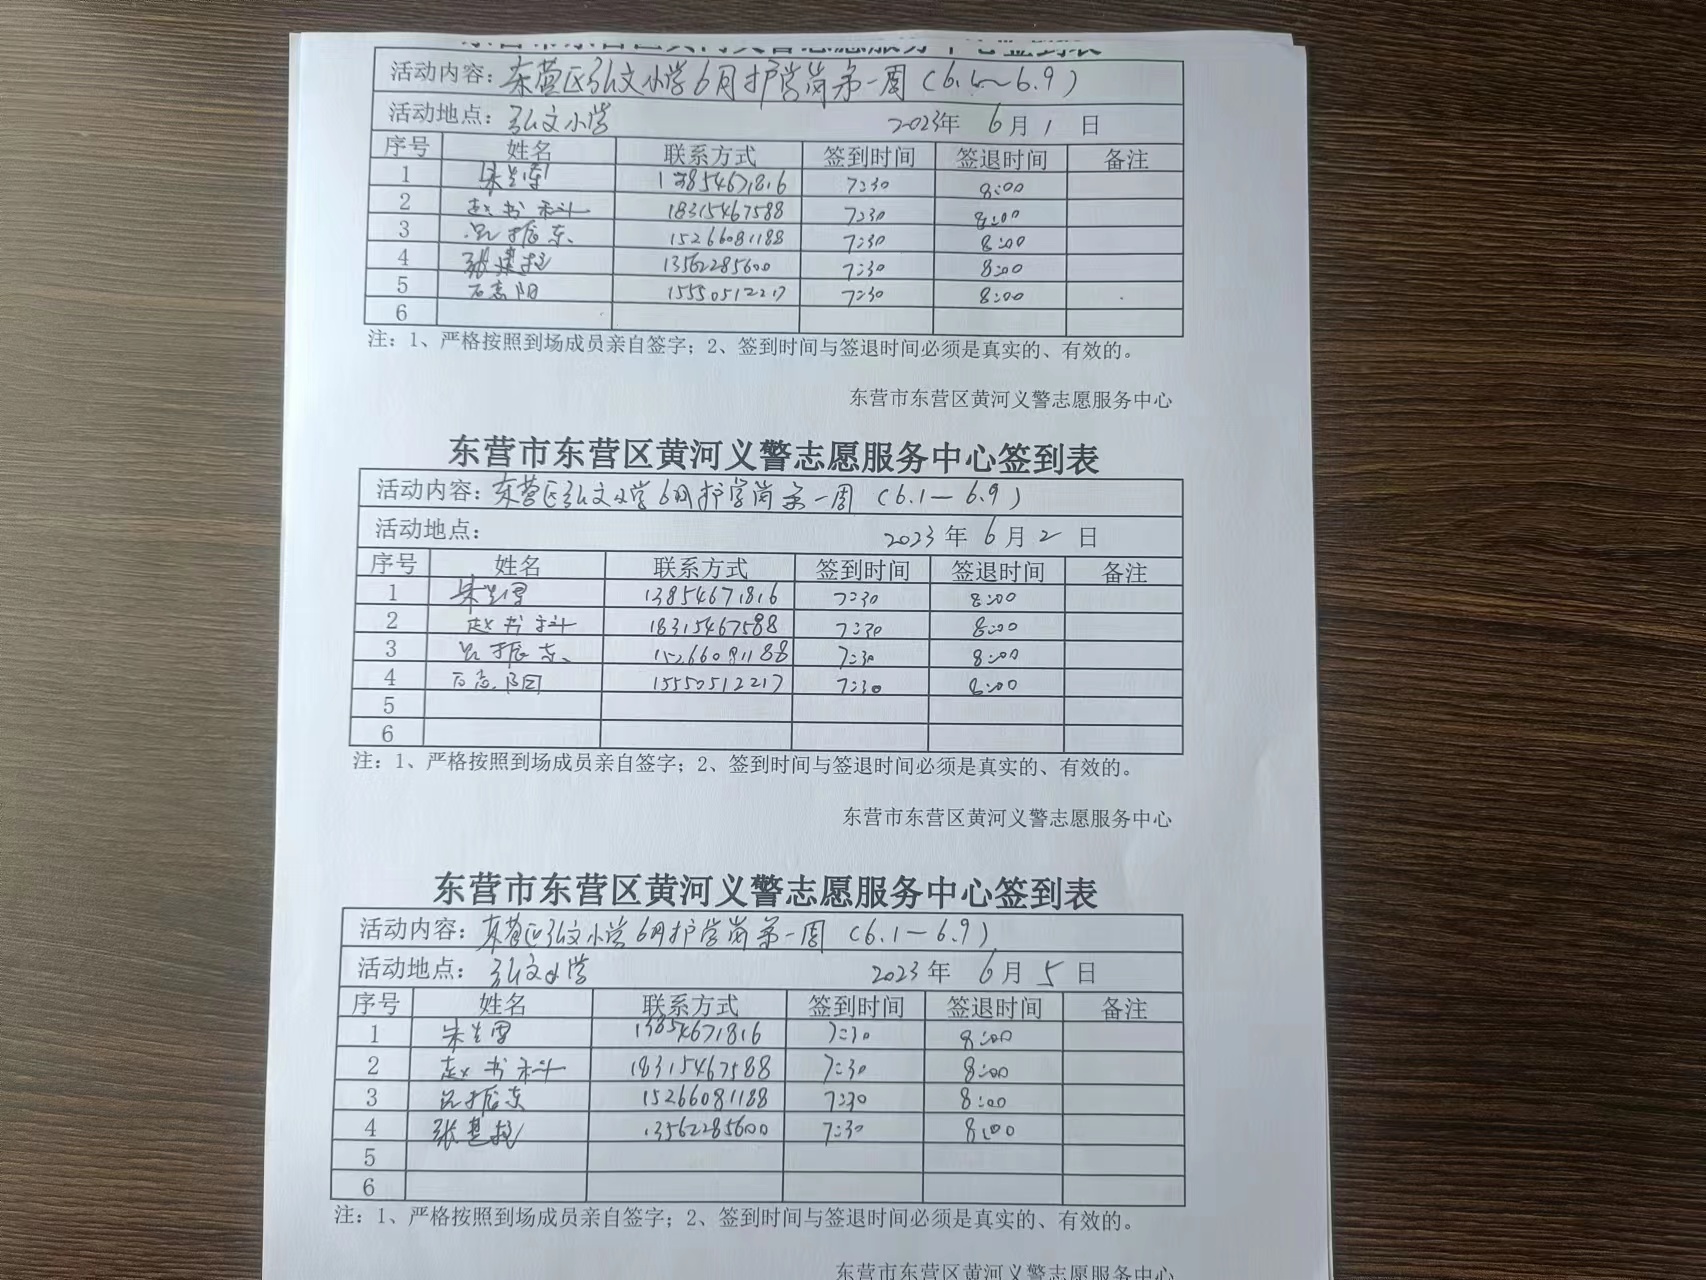 东营市东营区黄河义警志愿服务中心签到表
活动内容：东营区弘文小学6月护学岗第一周（6.1～6.9）
活动地点：弘文小学 2023年 6月 1 日
序号 姓名 联系方式 签到时间 签退时间 备注
1 13854671816 7:30 8:00
2 赵书科 18315467588 7:30 8:00
3 吕振东 15266081188 7:30 8:00
4 张建拉 13562285600 7:30 8:00
5 石志阳 15550512217 7:30 8:00
6
注：1、严格按照到场成员亲自签字；2、签到时间与签退时间必须是真实的、有效的。
东营市东营区黄河义警志愿服务中心
东营市东营区黄河义警志愿服务中心签到表
活动内容：东营区弘文小学6月护学岗第一周（6.1—6.9）
活动地点： 2023 年 6 月 2 日
序号 姓名 联系方式 签到时间 签退时间 备注
1 13854671816 7:30 8:00
2 赵书科 18315467588 7:30 8:00
3 吕振东 15266081188 7:30 8:00
4 石志阳 15550512217 7:30 8:00
5
6
注：1、严格按照到场成员亲自签字；2、签到时间与签退时间必须是真实的、有效的。
东营市东营区黄河义警志愿服务中心
东营市东营区黄河义警志愿服务中心签到表
活动内容：东营区弘文小学6月护学岗第一周（6.1—6.9）
活动地点：弘文小学 2023 年 6 月 5 日
序号 姓名 联系方式 签到时间 签退时间 备注
1 13854671816 7:30 8:00
2 赵书科 18315467588 7:30 8:00
3 吕振东 15266081188 7:30 8:00
4 13562285600 7:30 8:00
5
6
注：1、严格按照到场成员亲自签字；2、签到时间与签退时间必须是真实的、有效的。
东营市东营区黄河义警志愿服务中心